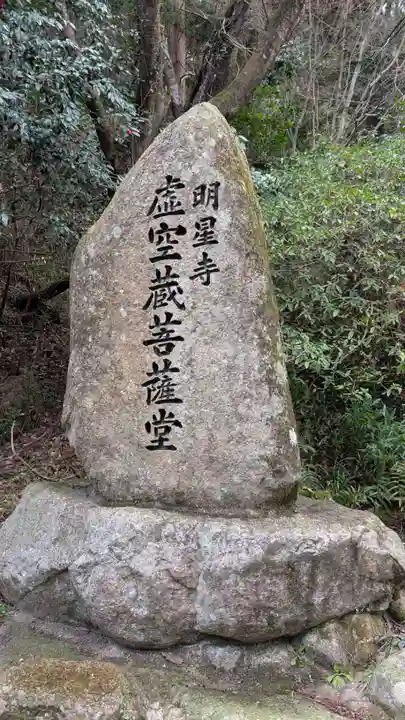 明星寺
虚空蔵菩薩堂